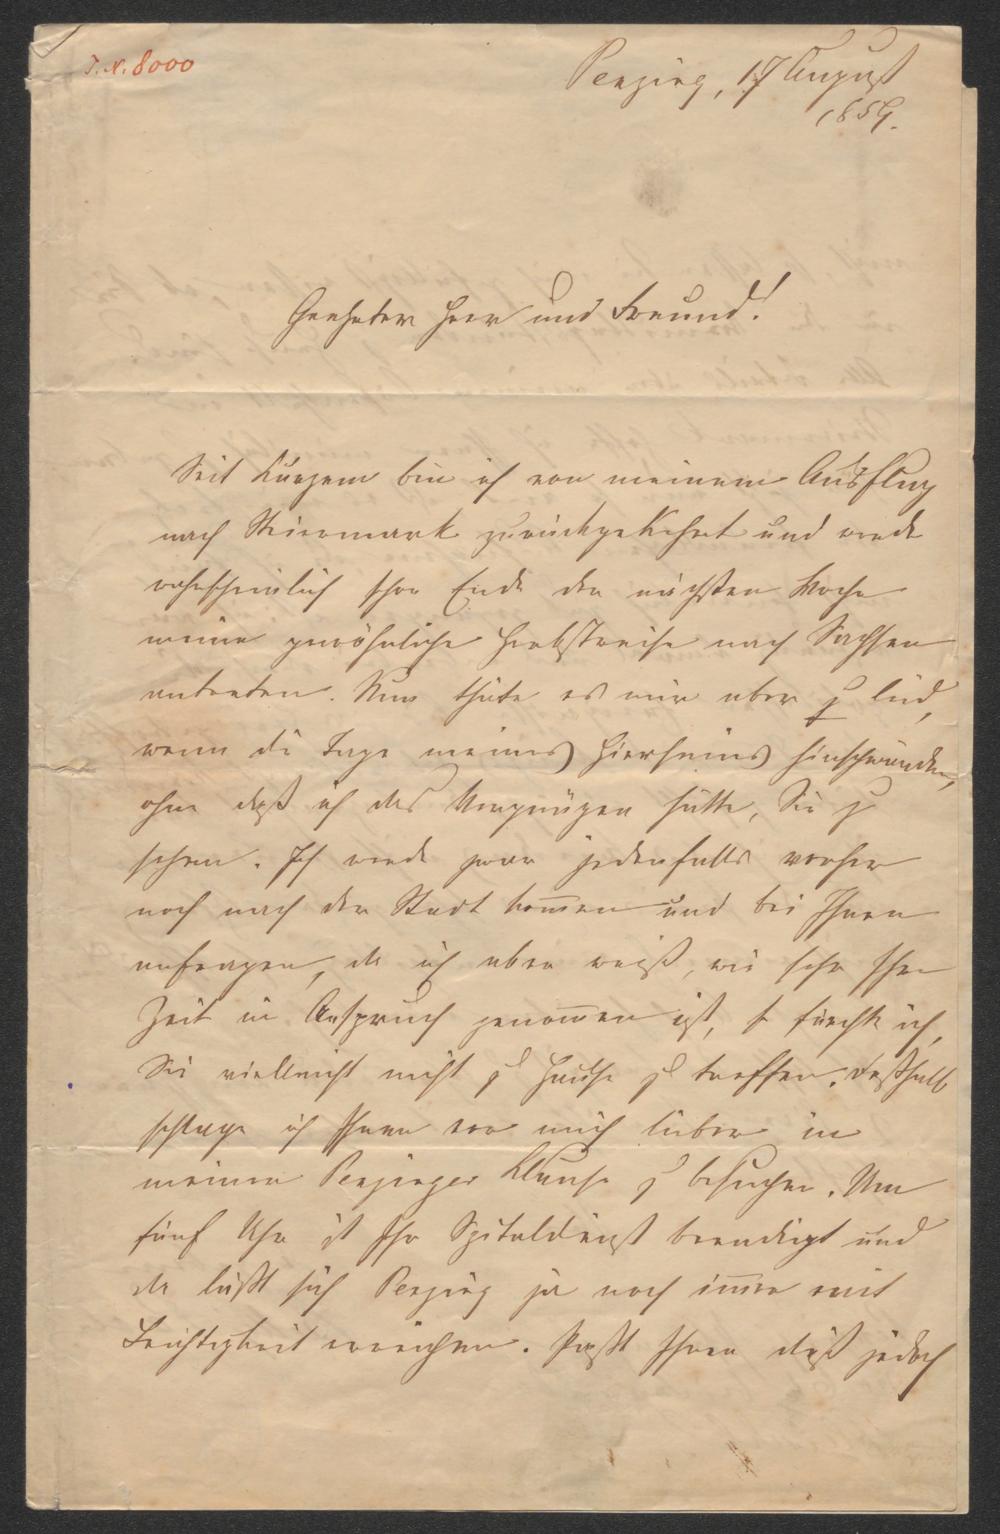 I. N. 8000
Penzing, 17 August
1859.
Geehrter Herr und Freund!
Seit Kurzem bin ich von meinem Ausflug
nach Steiermark zurückgekehrt und werde
wahrscheinlich schon Ende der nächsten Woche
meine gewöhnliche Herbstreise nach Sachsen
antreten. Nun thäte es mir aber zu leid,
wenn die Tage meines Hierseins hinschwänden,
ohne daß ich das Vergnügen hätte, Sie zu
sehen. Ich werde zwar jedenfalls vorher
noch nach der Stadt kom̅en und bei Ihnen
anfragen, da ich aber weiß, wie sehr Ihre
Zeit in Anspruch genom̅en ist, so fürchte ich,
Sie vielleicht nicht zu Hause zu treffen. Deßhalb
schlage ich Ihnen vor mich lieber in
meiner Penzinger Klause zu besuchen. Um
fünf Uhr ist Ihr Spitaldienst beendigt und
da läßt sich Penzing ja noch im̅er mit
Leichtigkeit erreichen. Paßt Ihnen dieß jedoch